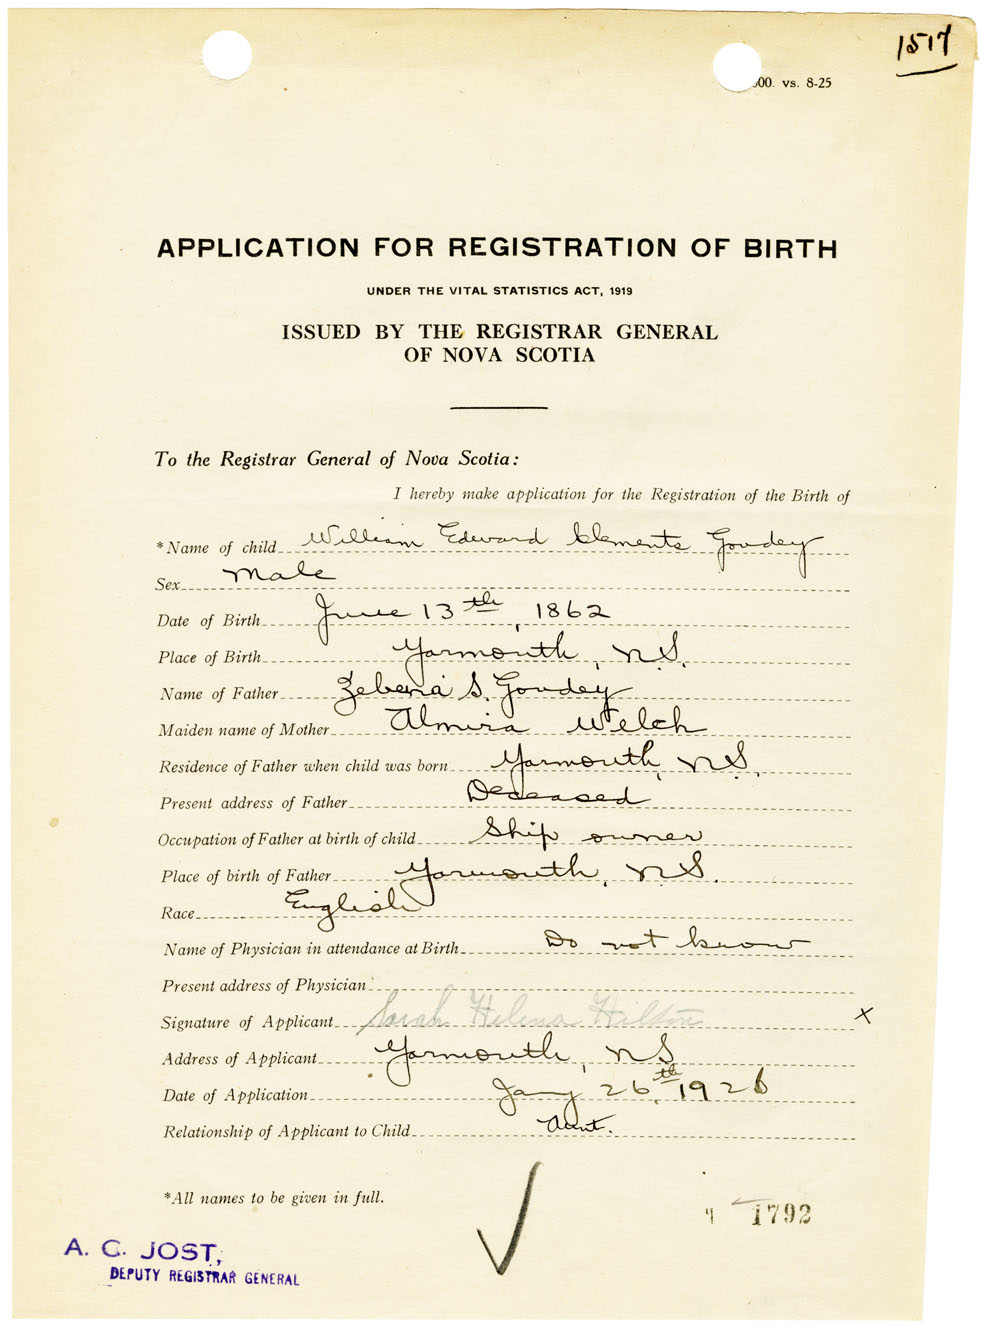 1517
00. vs. 8-25
APPLICATION FOR REGISTRATION OF BIRTH
UNDER THE VITAL STATISTICS ACT, 1919
ISSUED BY THE REGISTRAR GENERAL
OF NOVA SCOTIA
To the Registrar General of Nova Scotia:
I hereby make application for the Registration of the Birth of
*Name of child William Edward Clements Goudey
Sex Male
Date of Birth June 13th, 1862
Place of Birth Yarmouth, N.S.
Name of Father S. Goudey
Maiden name of Mother Almira Welch
Residence of Father when child was born Yarmouth, N.S.
Present address of Father Deceased
Occupation of Father at birth of child Ship owner
Place of birth of Father Yarmouth, N.S.
Race English
Name of Physician in attendance at Birth Do not know
Present address of Physician
Signature of Applicant Sarah Helena Hilton X
Address of Applicant Yarmouth, N.S
Date of Application Jany 26th, 1926
Relationship of Applicant to Child Aunt.
*All names to be given in full.
1792
A. C. JOST,
DEPUTY REGISTRAR GENERAL